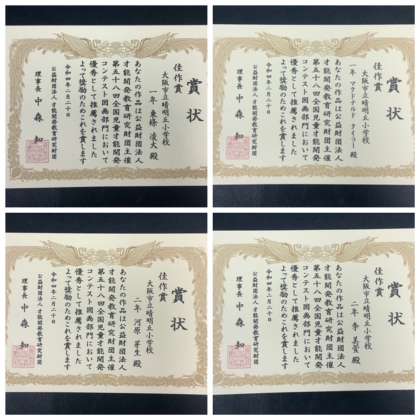 賞状
佳作賞
大阪市立晴明丘小学校
一年 東條 凌大 殿
あなたの作品は公益財団法人
才能開発教育研究財団主催
第五十八回全国児童才能開発
コンテスト図画部門において
優秀として推薦されました
よって奨励のためこれを賞します
令和四年二月二十日
公益財団法人 才能開発教育研究財団
理事長 中森 知
賞状
佳作賞
大阪市立晴明丘小学校
一年 マクドナルド テイラー 殿
あなたの作品は公益財団法人
才能開発教育研究財団主催
第五十八回全国児童才能開発
コンテスト図画部門において
優秀として推薦されました
よって奨励のためこれを賞します
令和四年二月二十日
公益財団法人 才能開発教育研究財団
理事長 中森 知
賞状
佳作賞
大阪市立晴明丘小学校
二年 河原 芽生 殿
あなたの作品は公益財団法人
才能開発教育研究財団主催
第五十八回全国児童才能開発
コンテスト図画部門において
優秀として推薦されました
よって奨励のためこれを賞します
令和四年二月二十日
公益財団法人 才能開発教育研究財団
理事長 中森 知
賞状
佳作賞
大阪市立晴明丘小学校
二年 李 美萱 殿
あなたの作品は公益財団法人
才能開発教育研究財団主催
第五十八回全国児童才能開発
コンテスト図画部門において
優秀として推薦されました
よって奨励のためこれを賞します
令和四年二月二十日
公益財団法人 才能開発教育研究財団
理事長 中森 知